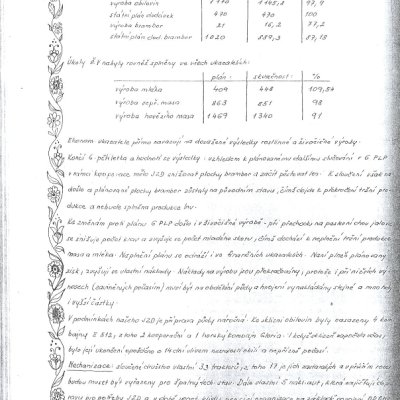 výroba obilovin 1 110 1 145,2 97,9
státní plán dodávek 490 490 100
výroba brambor 21 16,2 77,2
státní plán dod. brambor 1020 889,3 87,18
Úkoly ŽV nebyly rovněž splněny ve všech ukazatelích:
plán - skutečnost - %
výroba mléka 409 448 109,54
výroba vepř. masa 863 851 98
výroba hovězího masa 1469 1340 91
Ekonom. ukazatele přímo navazují na dosažené výsledky rostlinné a živočišné výroby.
Končí 6. pětiletka a hodnotí se výsledky. Vzhledem k plánovanému dalšímu slučování v 6. PLP
v rámci kooperace, mělo JZD snižovat plochy brambor a začít pěstovat len. K sloučení však ne-
došlo a plánované plochy brambor zůstaly na původním stavu, čímž dojde k překročení tržní pro-
dukce a nebude splněna produkce lnu.
Ke změnám proti plánu 6. PLP došlo i v živočišné výrobě - při přechodu na pastevní chov jalovic
se snižuje počet krav a zvyšuje se počet mladého skotu, čímž dochází k neplnění tržní produkce
masa a mléka. Neplnění plánu se odráží i ve finančních ukazatelích. Není plněn plánovaný
zisk, zvyšují se vlastní náklady. Náklady na výrobu jsou překračovány, protože i při nižších vý-
nosech (zaviněných počasím) musí být na obdělání půdy a hnojení vynakládány stejné a mnohdy
i vyšší částky.
V podmínkách našeho JZD je příprava půdy náročná. Ke sklizni obilovin byly nasazeny 4 kom-
bajny E 512, z toho 2 kooperační a 1 horský kombajn Gloria. I když sklizeň započala včas,
bylo její ukončení opožděno o 14 dní vlivem nezralosti obilí a nepřízně počasí.
Mechanizace: sloučené družstvo vlastní 33 traktorů, z toho 17 je jich zastaralých a v příštím roce
budou muset být vyřazeny pro špatný tech. stav. Dále vlastní 5 nákl. aut, která zajišťují do-
pravu pro potřeby JZD a v době volné